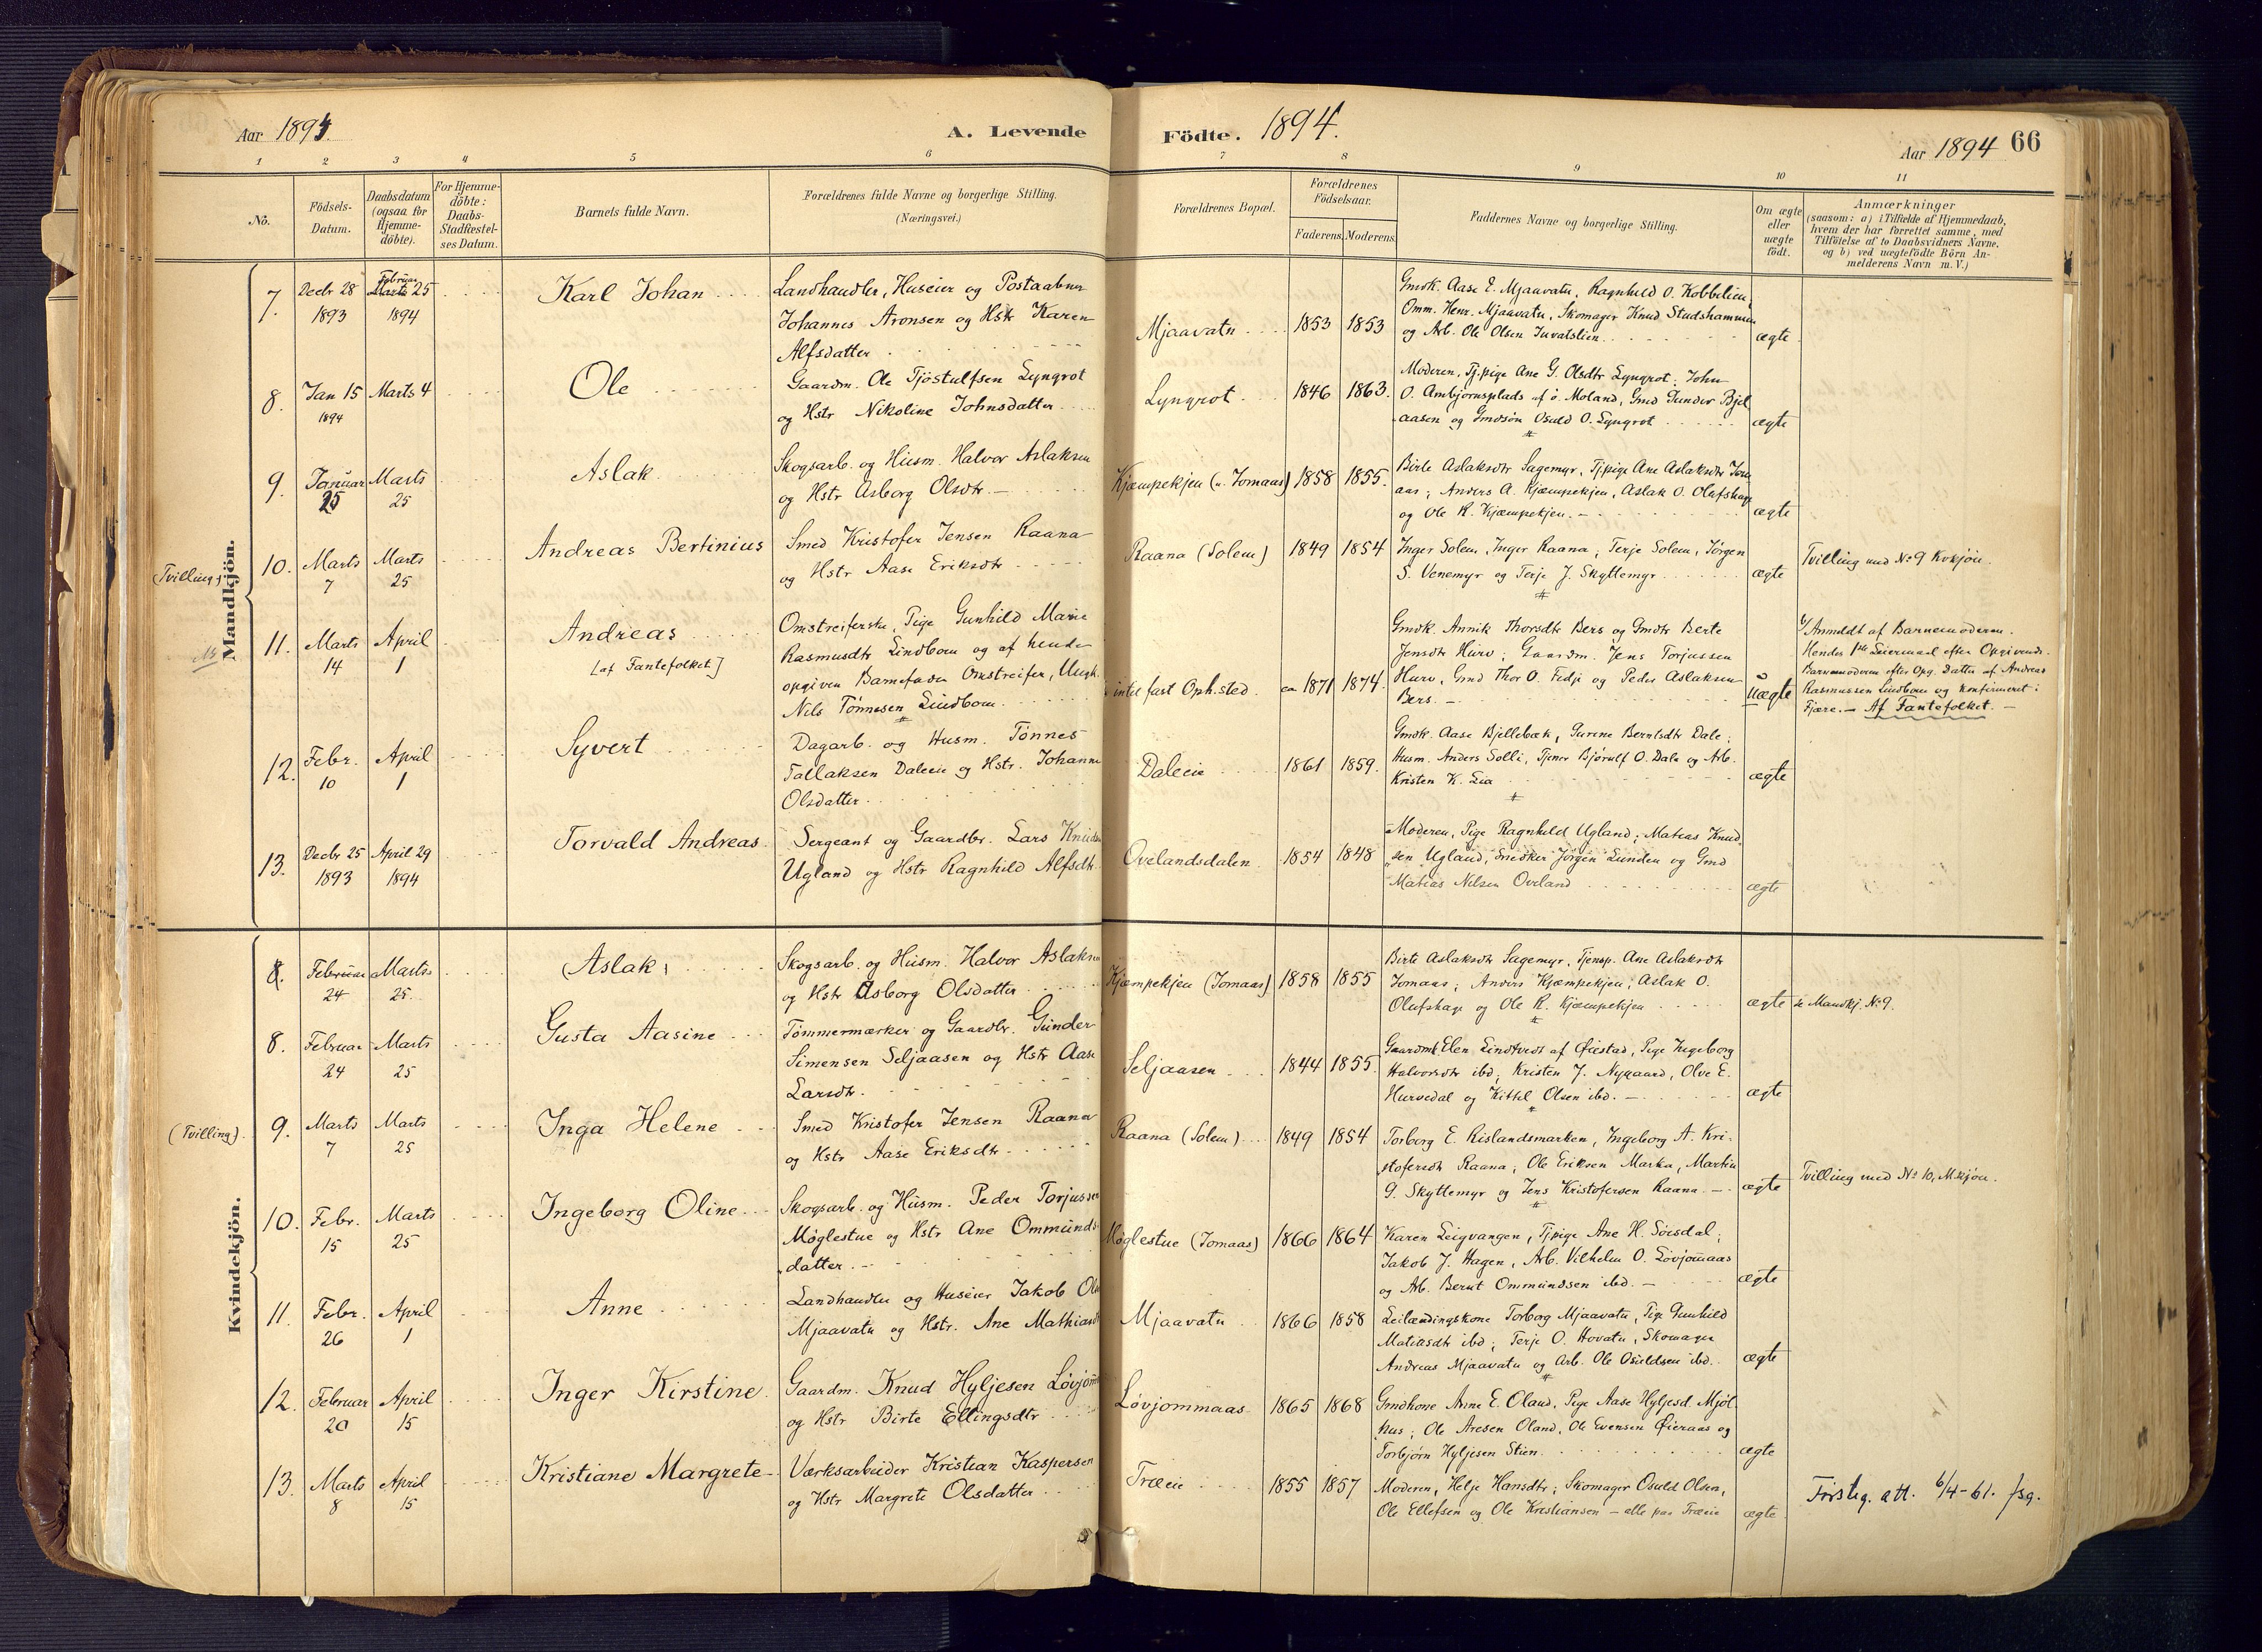 Aar 1894.
A. Levende
Födte. 1894.
Aar 1894
66
1 2 3 4 5 6 7 8 9 10 11
No.
Födsels-Datum.
Daabsdatum (ogsaa for Hjemme-döbte).
For Hjemme-döbte: Daabs-Stadfæstel-ses Datum.
Barnets fulde Navn.
Forældrenes fulde Navne og borgerlige Stilling. (Næringsvei.)
Forældrenes Bopæl.
Forældrenes Födselsaar.
Faderens. Moderens.
Faddernes Navne og borgerlige Stilling.
Om ægte eller uægte födt.
Anmærkninger
(saasom: a) i Tilfælde af Hjemmedaab,
hvem der har forrettet samme, med
Tilföielse af to Daabsvidners Navne,
og b) ved uægtefödte Börn An-
melderens Navn m. V.)
Mandkjön.
7. Decbr 28 1893
Februar 25 1894
Karl Johan
Landhandler, Huseier og Postaabner
Johannes Aronsen og Hstr Karen
Alfsdatter
Mjaavatn 1853 1853
Gmdk. Aase E. Mjaavatn, Ragnhild O. Kobbelien,
Omm. Henr. Mjaavatn, Skomager Knud Studshammen
og Arb. Ole Olsen
ægte
8. Jan 15 1894
Marts 4
Ole
Gaardm. Ole Tjøstulfsen Lyngrot
og Hstr Nikoline Johnsdatter
Lyngrot 1846 1863.
Moderen, Tj.pige Ane G. Olsdtr Lyngrot; John
O. Ambjørnsplads af ö. Moland, Gmd Gunder Bjel-
aasen og Gmdsøn Osuld O. Lyngrot
ægte
9. Januar 25
Marts 25
Aslak
Skogsarb. og Husm. Halvor Aslaksen
og Hstr Asborg Olsdtr. —
Kjæmpekjen (u. Jomaas) 1858 1855.
Birte Aslaksdtr Sagemyr, Tjpige Ane Aslaksdtr Jom-
aas; Anders A. Kjæmpekjen, Aslak O. Olafshage
og Ole R. Kjæmpekjen. —
ægte
(Tvilling)
10. Marts 7
Marts 25
Andreas Bertinius
Smed Kristofer Jensen Raana
og Hstr Aase Eriksdtr
Raana (Solem) 1849 1854
Inger Solem, Inger Raana, Terje Solem, Jörgen
S. Venemyr og Terje J. Skyttemyr
ægte
Tvilling med No 9 Kvkjön.
11. Marts 14
April 1
Andreas
[af Fantefolket]
Omstreiferske, Pige Gunhild Marie
Rasmusdtr Lindbom og af hende
opgiven Barnefader Omstreifer, Ungk.
Nils Tönnesen Lindbom
intet fast Oph.sted. ca 1871 1874.
Gmdk. Annik Thorsdtr Bers og Gmdtr Berte
Jensdtr Hurv; Gaardm. Jens Torjussen
Hurv, Gmd Thor O. Fidje og Peder Aslaksen
Bers. —
uægte
b/ Anmeldt af Barnemoderen.
Hendes 1ste Leiermaal efter Opgivende.
Barnemoderen efter Opg. Datter af Andreas
Rasmussen Lindbom og konfirmeret i
Fjære. — Af Fantefolket. —
12. Febr. 10
April 1
Syvert
Dagarb. og Husm. Tönnes
Tallaksen Daleeie og Hstr. Johanne
Olsdatter
Daleeie 1861 1859.
Gmdk. Aase Bjellebæk, Gurine Berntsdtr Dale;
Husm. Anders Solli, Tjener Bjørulf O. Dale og Arb.
Kristen K. Lia
ægte
13. Decbr 25 1893
April 29 1894
Torvald Andreas
Sergeant og Gaardbr. Lars Knuds
Ugland og Hstr Ragnhild Alfsdtr
Ovelandsdalen 1854 1848
Moderen, Pige Ragnhild Ugland; Matias Knud-
sen Ugland, Snedker Jörgen Lunden og Gmd
Matias Nilsen Oveland
ægte
Kvindekjön.
8. Februar 24
Marts 25
(Aslak)
Skogsarb. og Husm. Halvor Aslaksen
og Hstr Asborg Olsdatter
Kjæmpekjen (Jomaas) 1858 1855
Birte Aslaksdtr Sagemyr, Tjensp. Ane Aslaksdtr
Jomaas; Anders Kjæmpekjen, Aslak O.
Olafshage og Ole R. Kjæmpekjen
ægte
se Mandkj. No 9.
8. Februar 24
Marts 25
Gusta Aasine
Tömmermærker og Gaardbr. Gunder
Simensen Seljaasen og Hstr Aase
Larsdtr.
Seljaasen 1844 1855.
Gaardmk Elen Lindtveit af Øiestad, Pige Ingeborg
Halvorsdtr ibd; Kristen J. Nygaard, Olve E.
Hurvedal og Kittil Olsen ibd. —
ægte
(Tvilling)
9. Marts 7
Marts 25
Inga Helene
Smed Kristofer Jensen Raana
og Hstr Aase Eriksdtr
Raana (Solem) 1849 1854
Torborg E. Rislandsmarken, Ingeborg A. Kri-
stofersdtr Raana; Ole Eriksen Marka, Martin
G. Skyttemyr og Jens Kristofersen Raana. —
ægte
Tvilling med No 10, Mkjön.
10. Febr. 15
Marts 25
Ingeborg Oline
Skogsarb. og Husm. Peder Torjussen
Møglestue og Hstr Ane Ommunds-
datter. —
Møglestue (Jomaas) 1866 1864
Karen Leigvangen, Tjpige Ane H. Soesdal;
Jakob J. Hagen, Arb. Vilhelm O. Løvjomaas
og Arb. Bernt Ommundsen ibd. —
ægte
11. Febr. 26
April 1
Anne
Landhandler og Huseier Jakob Ols
Mjaavatn og Hstr. Ane Mathiasdt
Mjaavatn 1866 1858
Leilændingskone Torborg Mjaavatn, Pige Gunhild
Matiasdtr ibd; Terje O. Hovatn, Skomager
Andreas Mjaavatn og Arb. Ole Osuldsen ibd.
ægte
12. Februar 20
April 15
Inger Kirstine
Gaardm. Knud Hyljesen Løvjom
og Hstr Birte Ellingsdtr
Løvjommaas 1865 1868
Gmdkone Anne E. Oland, Pige Aase Hyljesd. Mjöl-
hus; Ole Aresen Oland, Ole Evensen Øieraas og
Torbjørn Hyljesen Stien
ægte
13. Marts 8
April 15
Kristiane Margrete
Værksarbeider Kristian Kaspersen
og Hstr Margrete Olsdatter
Træeie 1855 1857
Moderen, Helje Hansdtr; Skomager Osuld Olsen,
Ole Ellefsen og Ole Kristiansen — alle paa Træeie
ægte
Första. att. 6/4-61.